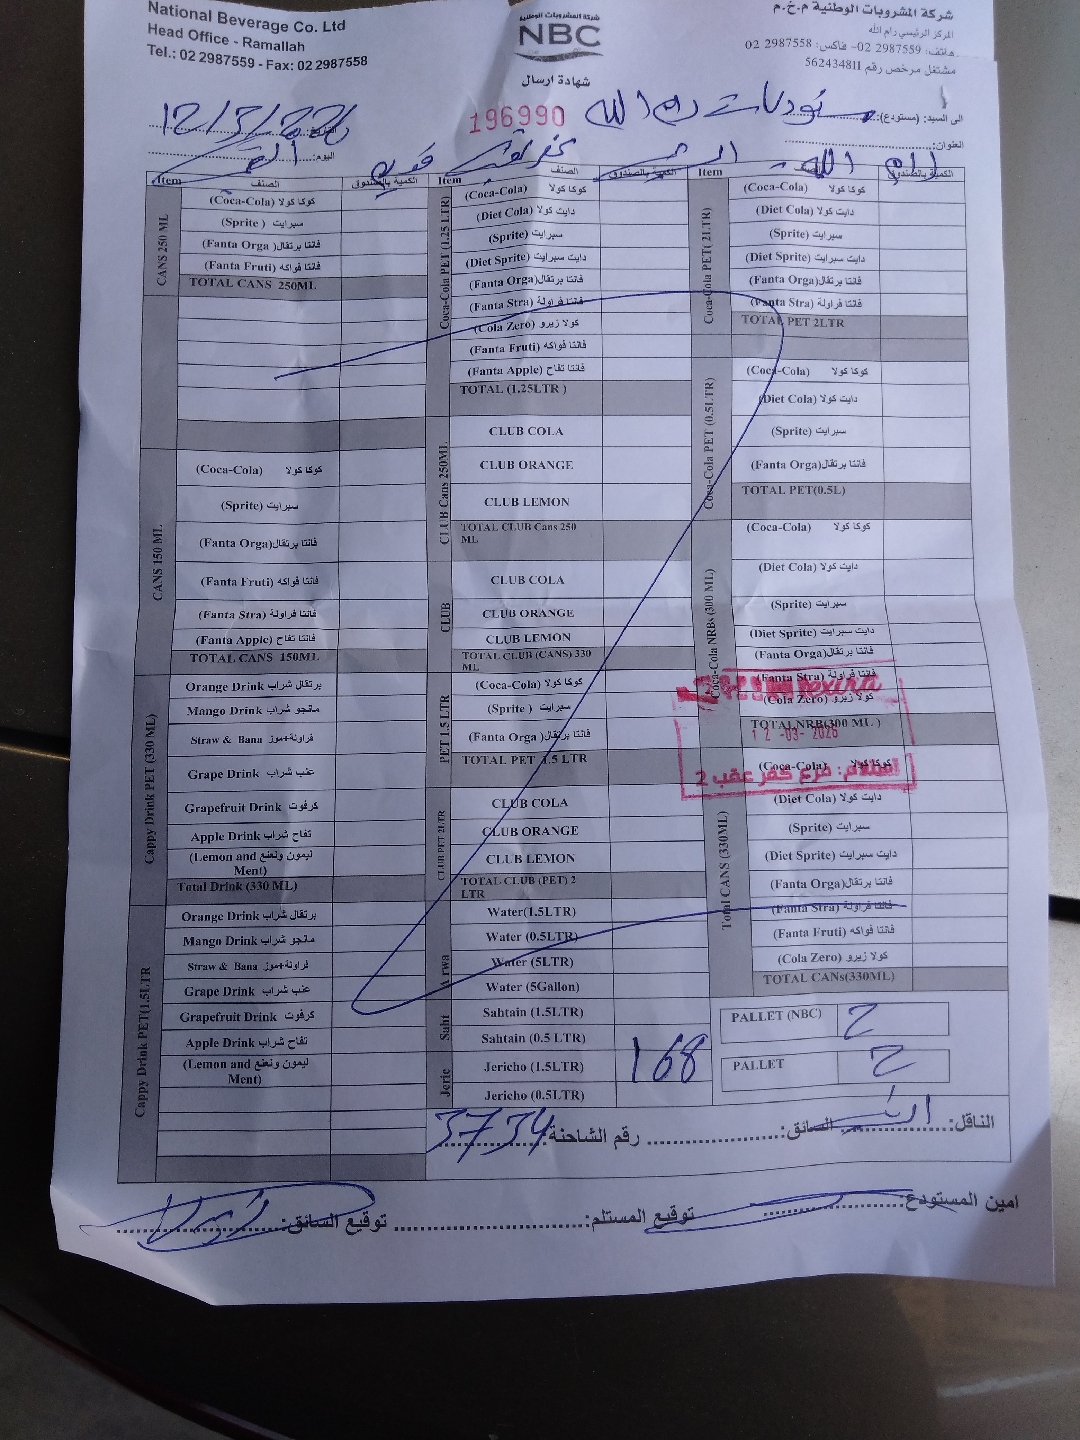 National Beverage Co. Ltd
Head Office - Ramallah
Tel.: 02 2987559 - Fax: 02 2987558
شركة المشروبات الوطنية
NBC
شركة المشروبات الوطنية م.خ.م
المركز الرئيسي رام الله
هاتف: 2987559 02- فاكس: 2987558 02
مشتغل مرخص رقم 562434811
شهادة ارسال
196990
الى السيد: (مستودع): مستودعات رام الله
العنوان:
12/3/
اليوم:
Item الصنف الكمية بالصندوق
CANS 250 ML
(Coca-Cola) كوكا كولا
(Sprite ) سبرايت
(Fanta Orga )فانتا برتقال
(Fanta Fruti) فانتا فواكه
TOTAL CANS 250ML
CANS 150 ML
(Coca-Cola) كوكا كولا
(Sprite) سبرايت
(Fanta Orga)فانتا برتقال
(Fanta Fruti) فانتا فواكه
(Fanta Stra) فانتا فراولة
(Fanta Apple) فانتا تفاح
TOTAL CANS 150ML
Cappy Drink PET (330 ML)
Orange Drink برتقال شراب
Mango Drink مانجو شراب
Straw & Bana فراولة+موز
Grape Drink عنب شراب
Grapefruit Drink كرفوت
Apple Drink تفاح شراب
(Lemon and ليمون ونعنع
Ment)
Total Drink (330 ML)
Cappy Drink PET(1.5LTR
Orange Drink برتقال شراب
Mango Drink مانجو شراب
Straw & Bana فراولة+موز
Grape Drink عنب شراب
Grapefruit Drink كرفوت
Apple Drink تفاح شراب
(Lemon and ليمون ونعنع
Ment)
Item الصنف الكمية بالصندوق
Coca-Cola PET (1.25 LTR)
(Coca-Cola) كوكا كولا
(Diet Cola) دايت كولا
(Sprite) سبرايت
(Diet Sprite) دايت سبرايت
(Fanta Orga)فانتا برتقال
(Fanta Stra) فانتا فراولة
(Cola Zero) كولا زيرو
(Fanta Fruti) فانتا فواكه
(Fanta Apple) فانتا تفاح
TOTAL (1.25LTR )
CLUB Cans 250ML
CLUB COLA
CLUB ORANGE
CLUB LEMON
TOTAL CLUB Cans 250
ML
CLUB
CLUB COLA
CLUB ORANGE
CLUB LEMON
TOTAL CLUB (CANS) 330
ML
PET 1.5 LTR
(Coca-Cola) كوكا كولا
(Sprite ) سبرايت
(Fanta Orga )فانتا برتقال
TOTAL PET 1.5 LTR
CLUB PET 2LTR
CLUB COLA
CLUB ORANGE
CLUB LEMON
TOTAL CLUB (PET) 2
LTR
Arwa
Water(1.5LTR)
Water (0.5LTR)
Water (5LTR)
Water (5Gallon)
Saht
Sahtain (1.5LTR)
Sahtain (0.5 LTR)
Jeric
Jericho (1.5LTR) 168
Jericho (0.5LTR)
Item الكمية بالصندوق
Coca-Cola PET( 2LTR)
(Coca-Cola) كوكا كولا
(Diet Cola) دايت كولا
(Sprite) سبرايت
(Diet Sprite) دايت سبرايت
(Fanta Orga)فانتا برتقال
(Fanta Stra) فانتا فراولة
TOTAL PET 2LTR
Coca-Cola PET (0.5LTR)
(Coca-Cola) كوكا كولا
(Diet Cola) دايت كولا
(Sprite) سبرايت
(Fanta Orga)فانتا برتقال
TOTAL PET(0.5L)
Coca-Cola NRBs (300 ML)
(Coca-Cola) كوكا كولا
(Diet Cola) دايت كولا
(Sprite) سبرايت
(Diet Sprite) دايت سبرايت
(Fanta Orga)فانتا برتقال
(Fanta Stra) فانتا فراولة
(Cola Zero) كولا زيرو
TOTAL NRB(300 ML )
12-03-2026
استلام: فرع كفر عقب 2
Total CANS (330ML)
(Coca-Cola) كوكا كولا
(Diet Cola) دايت كولا
(Sprite) سبرايت
(Diet Sprite) دايت سبرايت
(Fanta Orga)فانتا برتقال
(Fanta Stra) فانتا فراولة
(Fanta Fruti) فانتا فواكه
(Cola Zero) كولا زيرو
TOTAL CANs(330ML)
PALLET (NBC) 2
PALLET 2
الناقل: السائق: رقم الشاحنة: 3734
امين المستودع: توقيع المستلم: توقيع السائق: